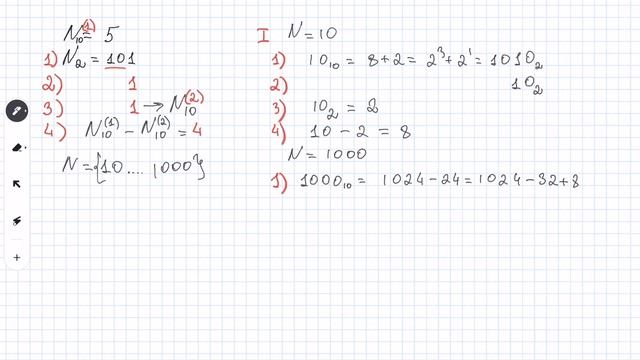 N₁₀⁽¹⁾= 5
1) N₂ = 101
2) 1
3) 1 → N₁₀⁽²⁾
4) N₁₀⁽¹⁾ − N₁₀⁽²⁾ = 4
N={10 .... 1000}
I N=10
1) 10₁₀ = 8+2 = 2³+2¹ = 1010₂
2) 10₂
3) 10₂ = 2
4) 10 − 2 = 8
N = 1000
1) 1000₁₀ = 1024 − 24 = 1024 − 32 + 8